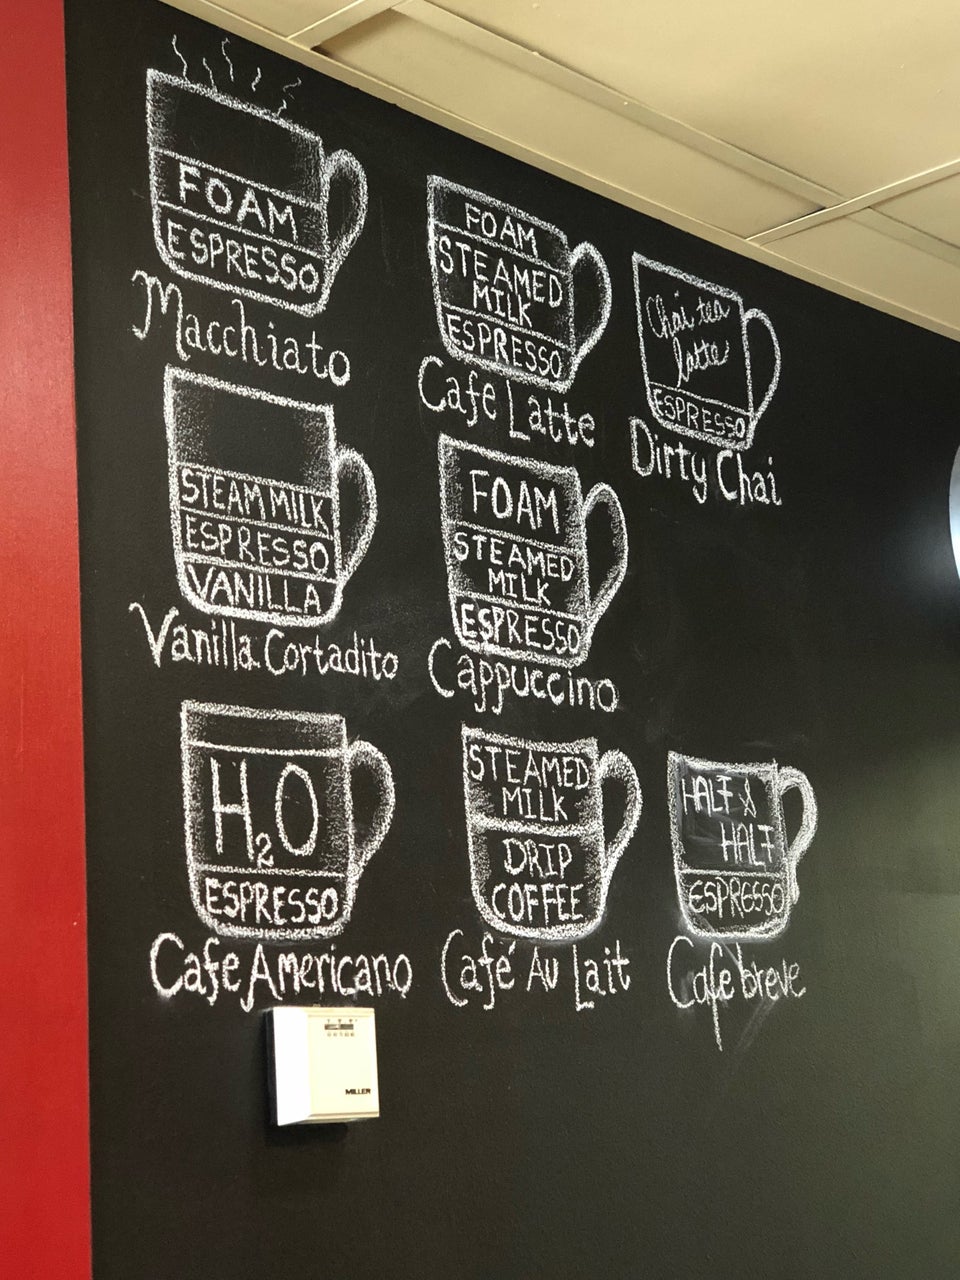 FOAM
ESPRESSO
Macchiato
FOAM
STEAMED
MILK
ESPRESSO
Cafe Latte
Chai tea
latte
ESPRESSO
Dirty Chai
STEAM MILK
ESPRESSO
VANILLA
Vanilla Cortadito
FOAM
STEAMED
MILK
ESPRESSO
Cappuccino
H₂O
ESPRESSO
Cafe Americano
STEAMED
MILK
DRIP
COFFEE
Café Au Lait
HALF &
HALF
ESPRESSO
Cafe breve
MILLER